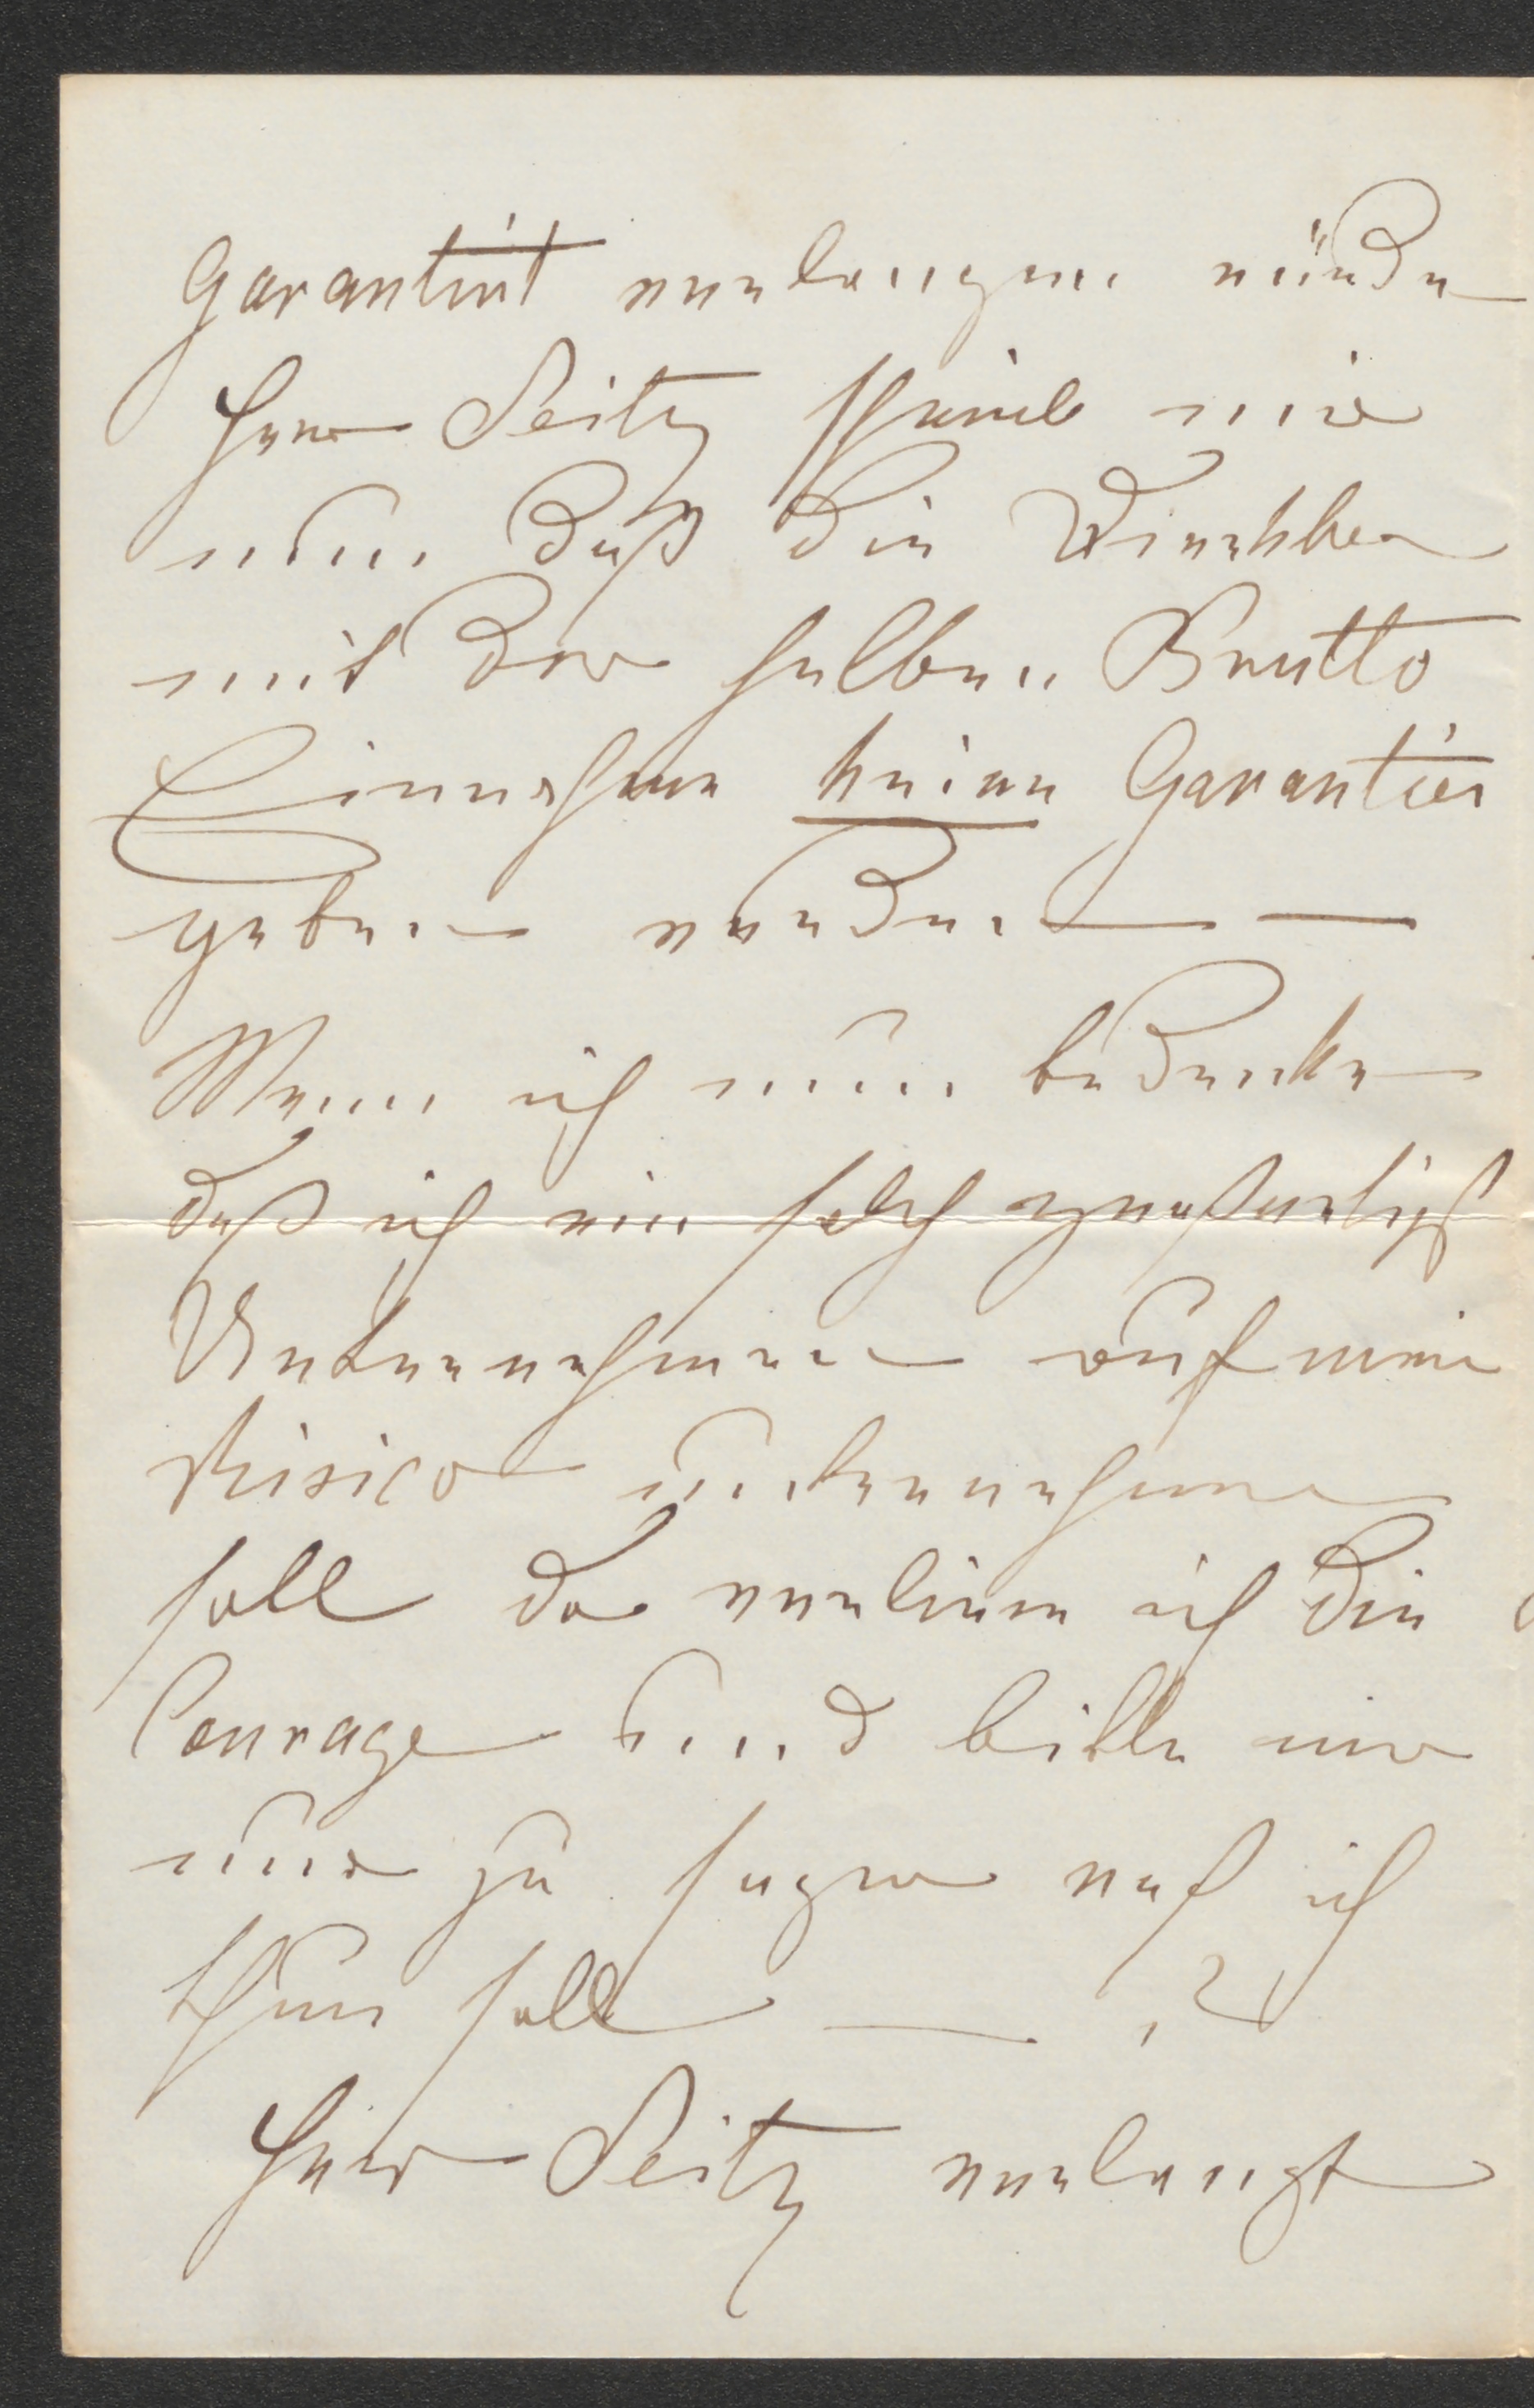 garantirt verlangen würde
Herr Seitz schrieb mir
nun daß die
mit der halben Brutto
Einnahme keine Garantie
geben werden —
Wenn ich nun bedenke
daß ich ein solch gefährlich
Unternehmen auf mein
Risico unternehmen
soll da verliere ich die
Courage und bitte mir
nur zu sagen was ich
thun soll — ?
Herr Seitz verlangt